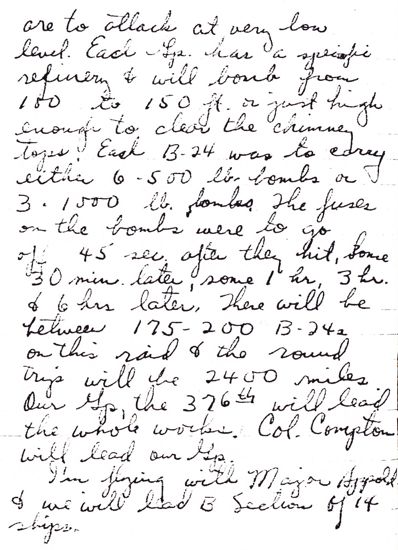 are to attack at very low
level. Each Gp. has a specific
refinery & will bomb from
100 to 150 ft. or just high
enough to clear the chimney
tops. Each B-24 was to carry
either 6-500 lb. bombs or
3-1000 lb. bombs. The fuses
on the bombs were to go
off 45 sec. after they hit, some
30 min. later, some 1 hr, 3 hr.
& 6 hrs later. There will be
between 175-200 B-24s
on this raid & the round
trip will be 2400 miles.
Our Gp, the 376th will lead
the whole works. Col. Compton
will lead our Gp.
I'm flying with Major Appold
& we will lead B Section of 14
ships.